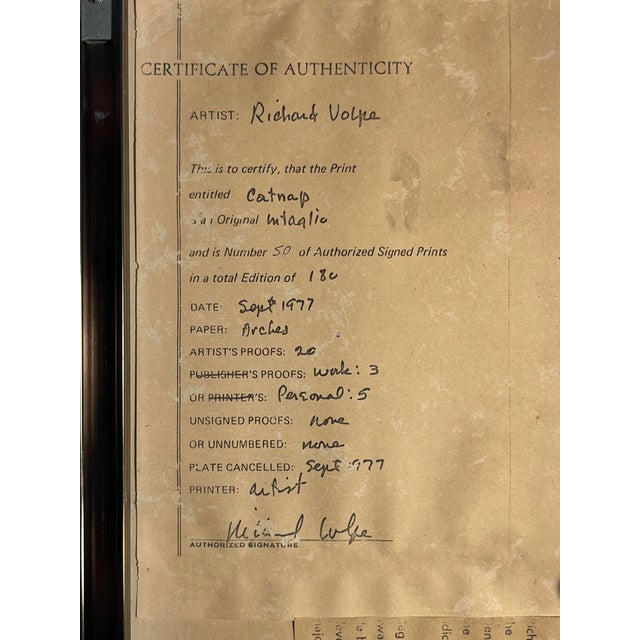 CERTIFICATE OF AUTHENTICITY
ARTIST: Richard Volpe
This is to certify, that the Print
entitled Catnap
is an Original intaglio
and is Number 50 of Authorized Signed Prints
in a total Edition of 180
DATE: Sept 1977
PAPER: Arches
ARTIST'S PROOFS: 20
PUBLISHER'S PROOFS: Work: 3
OR PRINTER'S: Personal: 5
UNSIGNED PROOFS: none
OR UNNUMBERED: none
PLATE CANCELLED: Sept 1977
PRINTER: artist
Richard Volpe
AUTHORIZED SIGNATURE